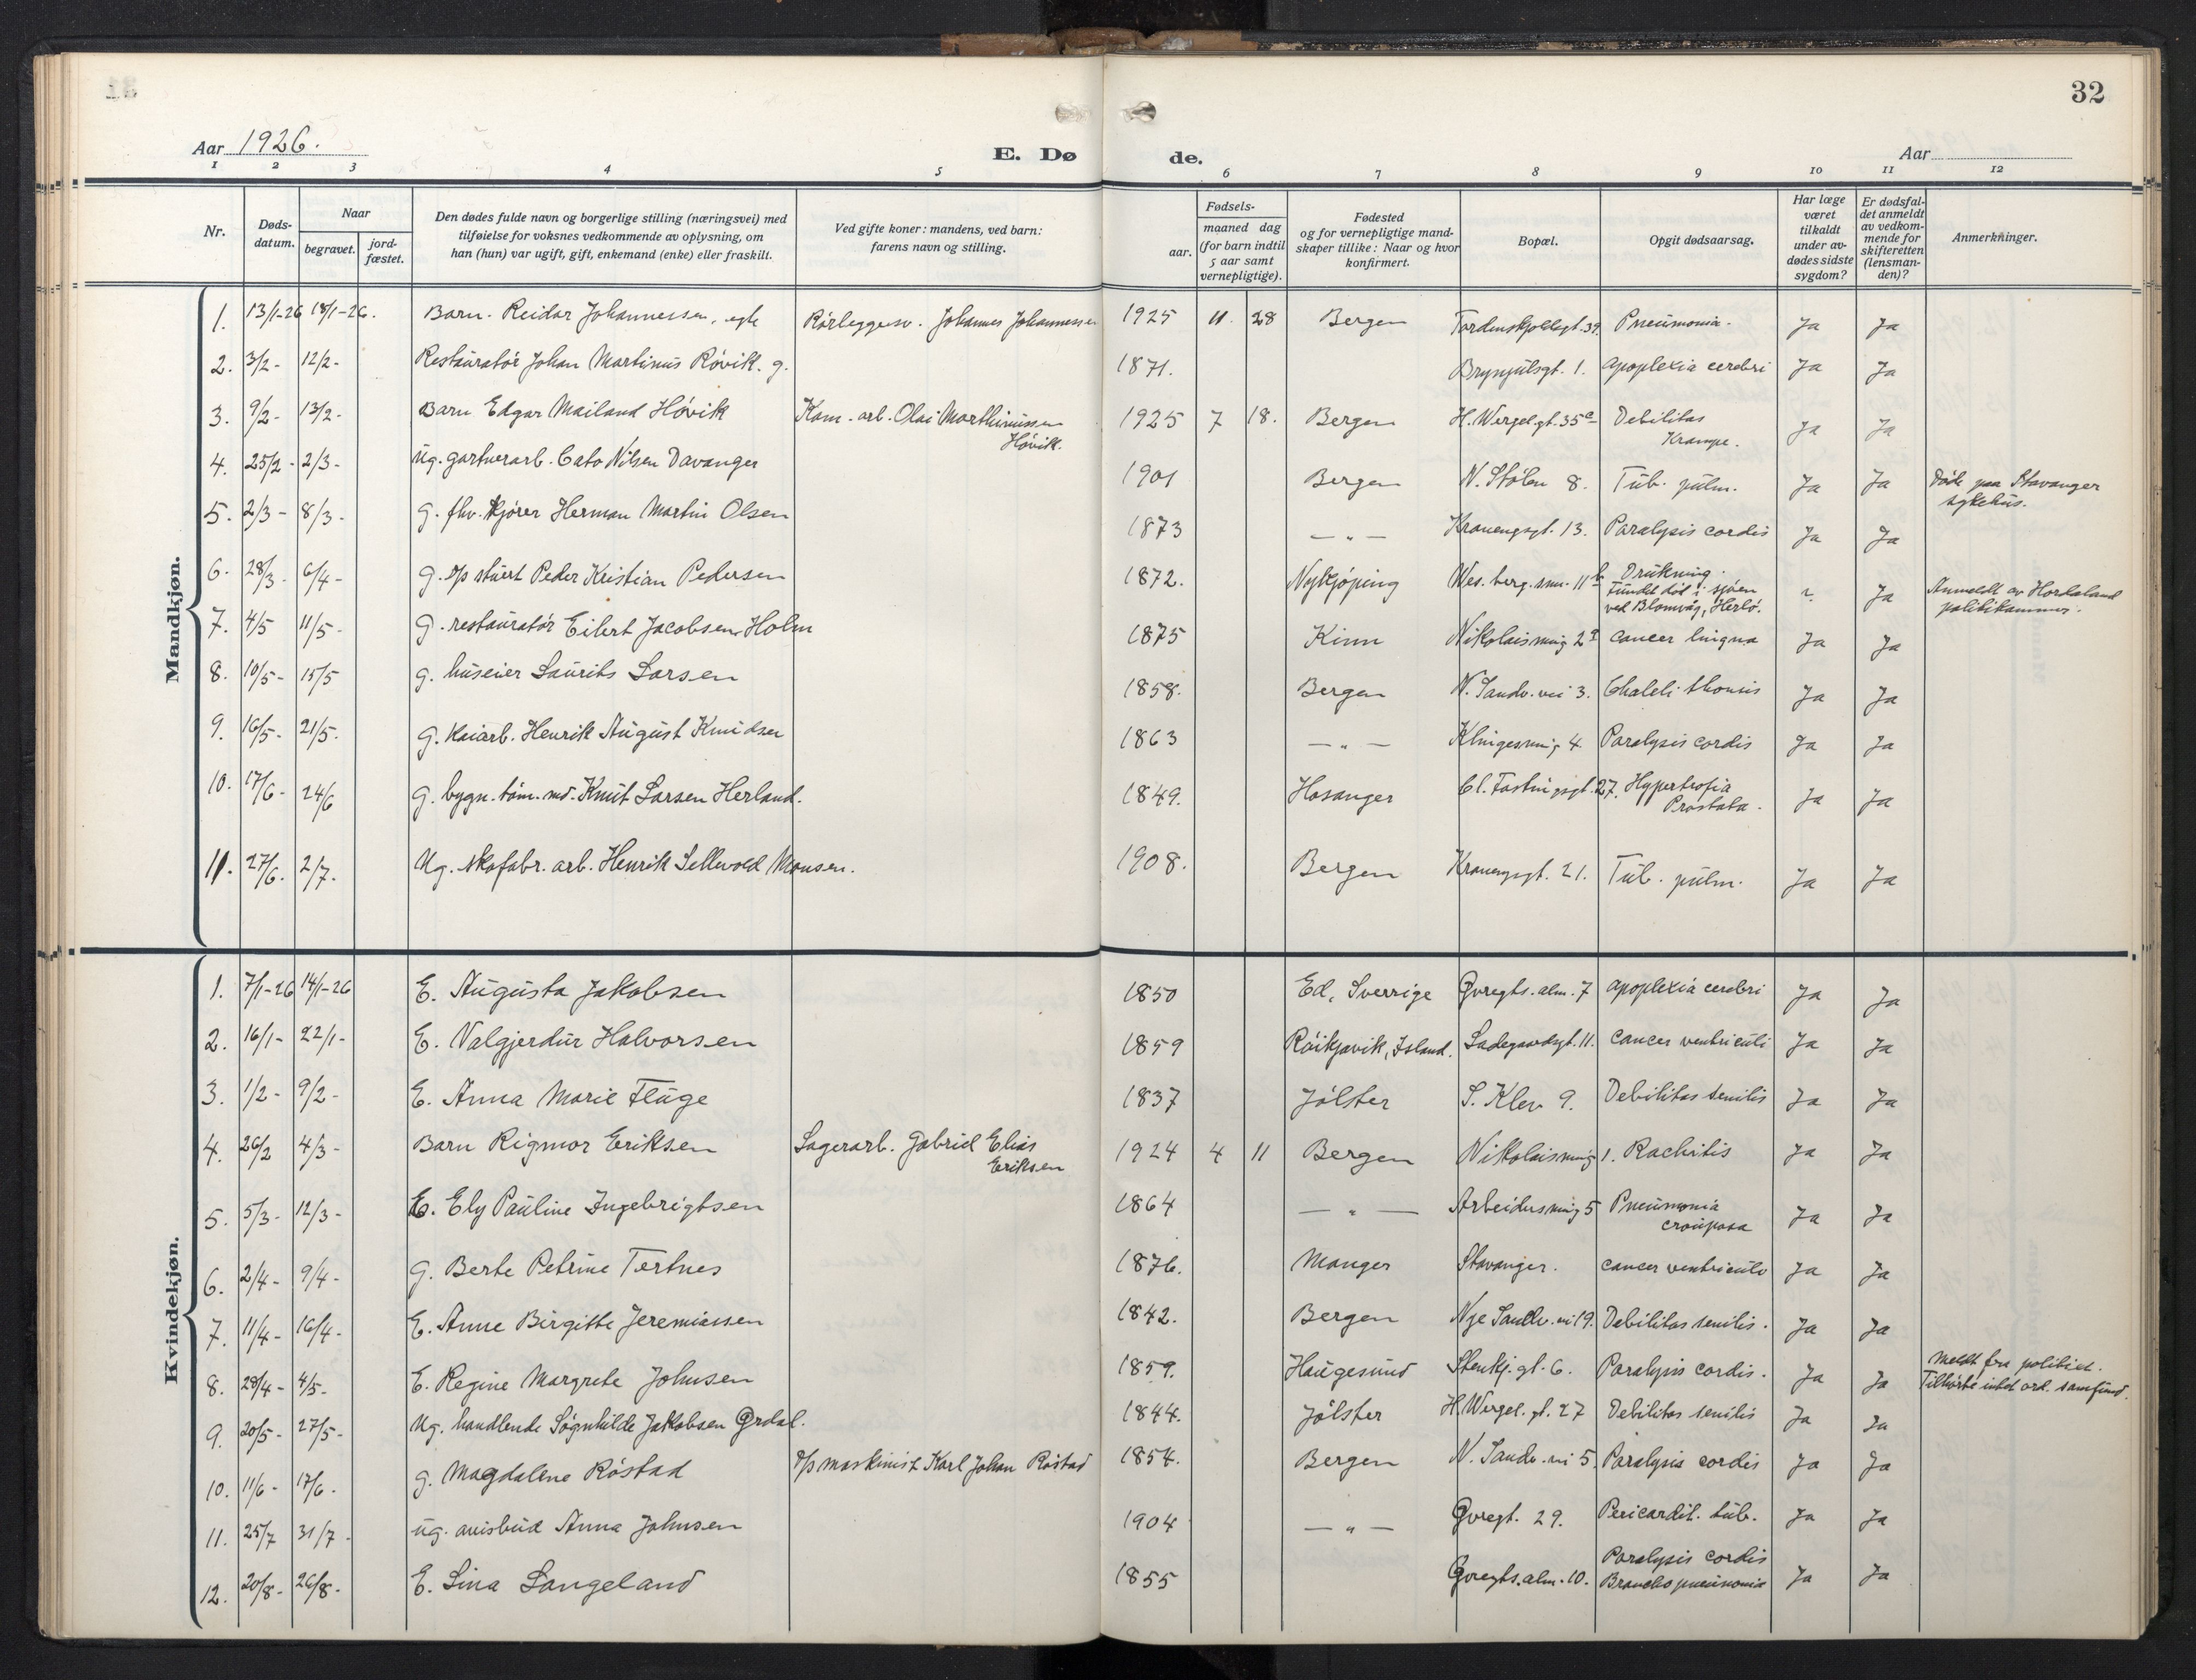 32
Aar 1926.
E. Dø de.
Aar
1 2 3 4 5 6 7 8 9 10 11 12
Nr.
Døds-
datum.
Naar
begravet.
jord-
fæstet.
Den dødes fulde navn og borgerlige stilling (næringsvei) med
tilføielse for voksnes vedkommende av oplysning, om
han (hun) var ugift, gift, enkemand (enke) eller fraskilt.
Ved gifte koner: mandens, ved barn:
farens navn og stilling.
Fødsels-
aar.
maaned dag
(for barn indtil
5 aar samt
vernepligtige).
Fødested
og for vernepligtige mand-
skaper tillike: Naar og hvor
konfirmert.
Bopæl.
Opgit dødsaarsag.
Har læge
været
tilkaldt
under av-
dødes sidste
sygdom?
Er dødsfal-
det anmeldt
av vedkom-
mende for
skifteretten
(lensman-
den)?
Anmerkninger.
Mandkjøn.
1. 13/1-26 18/1-26. Barn. Reidar Johannessen, egte Rørleggesv. Johannes Johannessen 1925 11 28 Bergen Tordenskjoldsgt. 39. Pneumonia. Ja Ja
2. 3/2- 12/2- Restauratør Johan Martinus Røvik. g. 1871. Brynjulsgt. 1. apoplexia cerebri Ja Ja
3. 9/2- 13/2- Barn Edgar Mailand Høvik Kom. arb. Olai Marthinussen 1925 7 18. Bergen H. Wergel. gt. 35 Debilitas Ja Ja
Høvik. Krampe.
4. 25/2- 2/3- Ug. gartnerarb. Cato Nilsen Davanger 1901 Bergen N. Stølen 8. Tub. pulm. Ja Ja Døde paa Stavanger
sykehus.
5. 2/3- 8/3- g. fhv. kjører Herman Martin Olsen 1873 — " — Kronengsgt. 13. Paralysis cordis Ja Ja
6. 28/3- 6/4- g. d/p stuert Peder Kristian Pedersen 1872. Nykjøping Wes. berg. smu. 11 b Drukning. Ja Anmeldt av Hordaland
Fundet død i sjøen politikammer.
ved Blomvåg, Herlø.
7. 4/5 11/5- g. restauratør Eilert Jacobsen Holm 1875 Kinn Nikolaismug 2 cancer lingua Ja Ja
8. 10/5- 15/5 g. huseier Laurits Larsen 1858. Bergen N. Sandv. vei 3. Ja Ja
9. 16/5- 21/5. g. Kaiarb. Henrik August Knudsen 1863 — " — Klingesmug 4. Paralysis cordis Ja Ja
10. 17/6- 24/6 g. bygn. tøm. md. Knut Larsen Herland. 1849. Hosanger Cl. Fastingsgt. 27. Hypertrofia Ja Ja
Prostata.
11. 27/6. 2/7. Ug. skofabr. arb. Henrik Sellevold Monsen. 1908. Bergen Kronengsgt. 21. Tub. pulm. Ja Ja
Kvindekjøn.
1. 7/1-26 14/1-26 E. Augusta Jakobsen 1850 Ed, Sverrige apoplexia cerebri Ja Ja
2. 16/1- 22/1- E. Valgjerdur Halvorsen 1859 Røikjavik, Island. Ladegaardsgt. 11. cancer ventriculi Ja Ja
3. 1/2- 9/2- E. Anna Marie Fluge 1837 Jølster S. Klev 9. Debilitas senilis Ja Ja
4. 26/2 4/3- Barn Rigmor Eriksen Lagerarb. Gabriel Elias 1924 4 11 Bergen Nikolaismug 1. Rachitis Ja Ja
Eriksen
5. 5/3- 12/3- E. Ely Pauline Ingebrigtsen 1864 — " — Arbeidersmug 5 Pneumonia Ja Ja
crouposa
6. 2/4- 9/4- g. Berte Petrine Tertnes 1876. Manger Stavanger. cancer ventriculo Ja Ja
7. 11/4- 16/4- E. Anne Birgitte Jeremiassen 1842. Bergen Nye Sandv. vei 19. Debilitas senilis. Ja Ja
8. 28/4- 4/5- E. Regine Margrete Johnsen 1859. Haugesund Stenkj. gt. 6. Paralysis cordis. Ja Ja Meldt fra politiet.
Tilhørte intet ord. samfund.
9. 20/5- 27/5- Ug. handlende Søgnhilde Jakobsen Årdal. 1844. Jølster H. Wergel. gt. 27 Debilitas senilis Ja Ja
10. 11/6- 17/6. g. Magdalene Røstad d/p maskinist Karl Johan Røstad 1854. Bergen N. Sandv. vei 5. Paralysis cordis Ja Ja
11. 25/7 31/7- ug. avisbud Anna Johnsen 1904 — " — Øvregt. 29. Pericardit. tub. Ja Ja
12. 20/8- 26/8- E. Lina Langeland 1855 Øvregts. alm. 10. Paralysis cordis Ja Ja
Bronchopneumonia